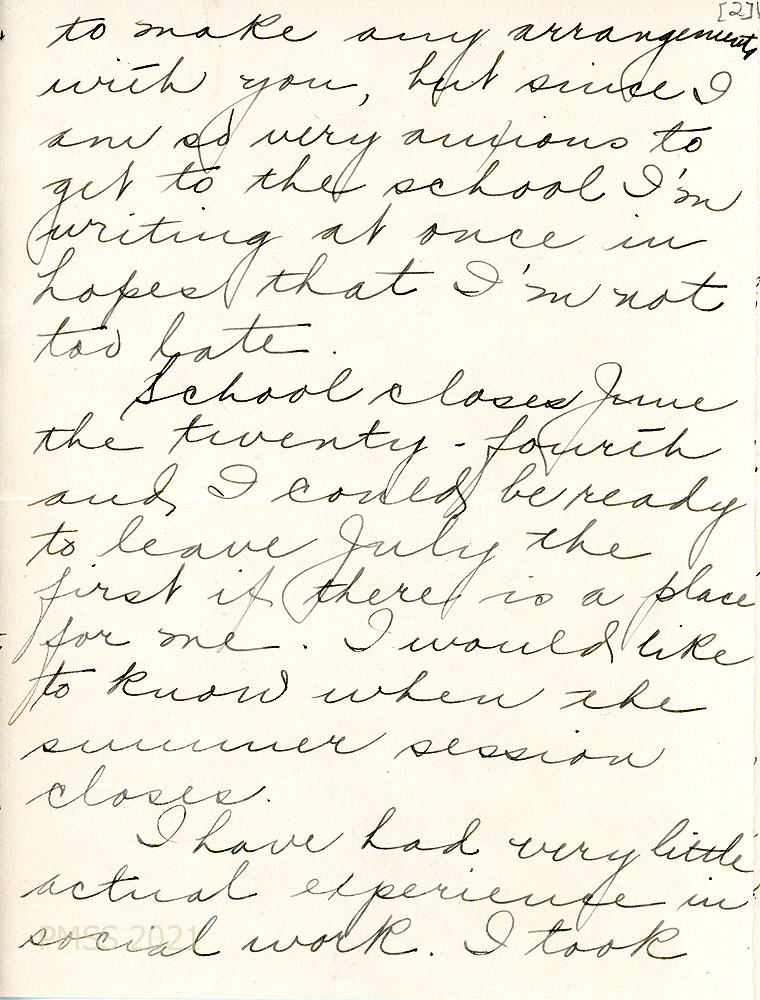 [2]
to make any arrangements
with you, but since I
am so very anxious to
get to the school I'm
writing at once in
hopes that I'm not
too late.
School closes June
the twenty-fourth
and, I could be ready
to leave July the
first if there is a place
for me. I would like
to know when the
summer session
closes.
I have had very little
actual experience in
social work. I took
PMSS 2021